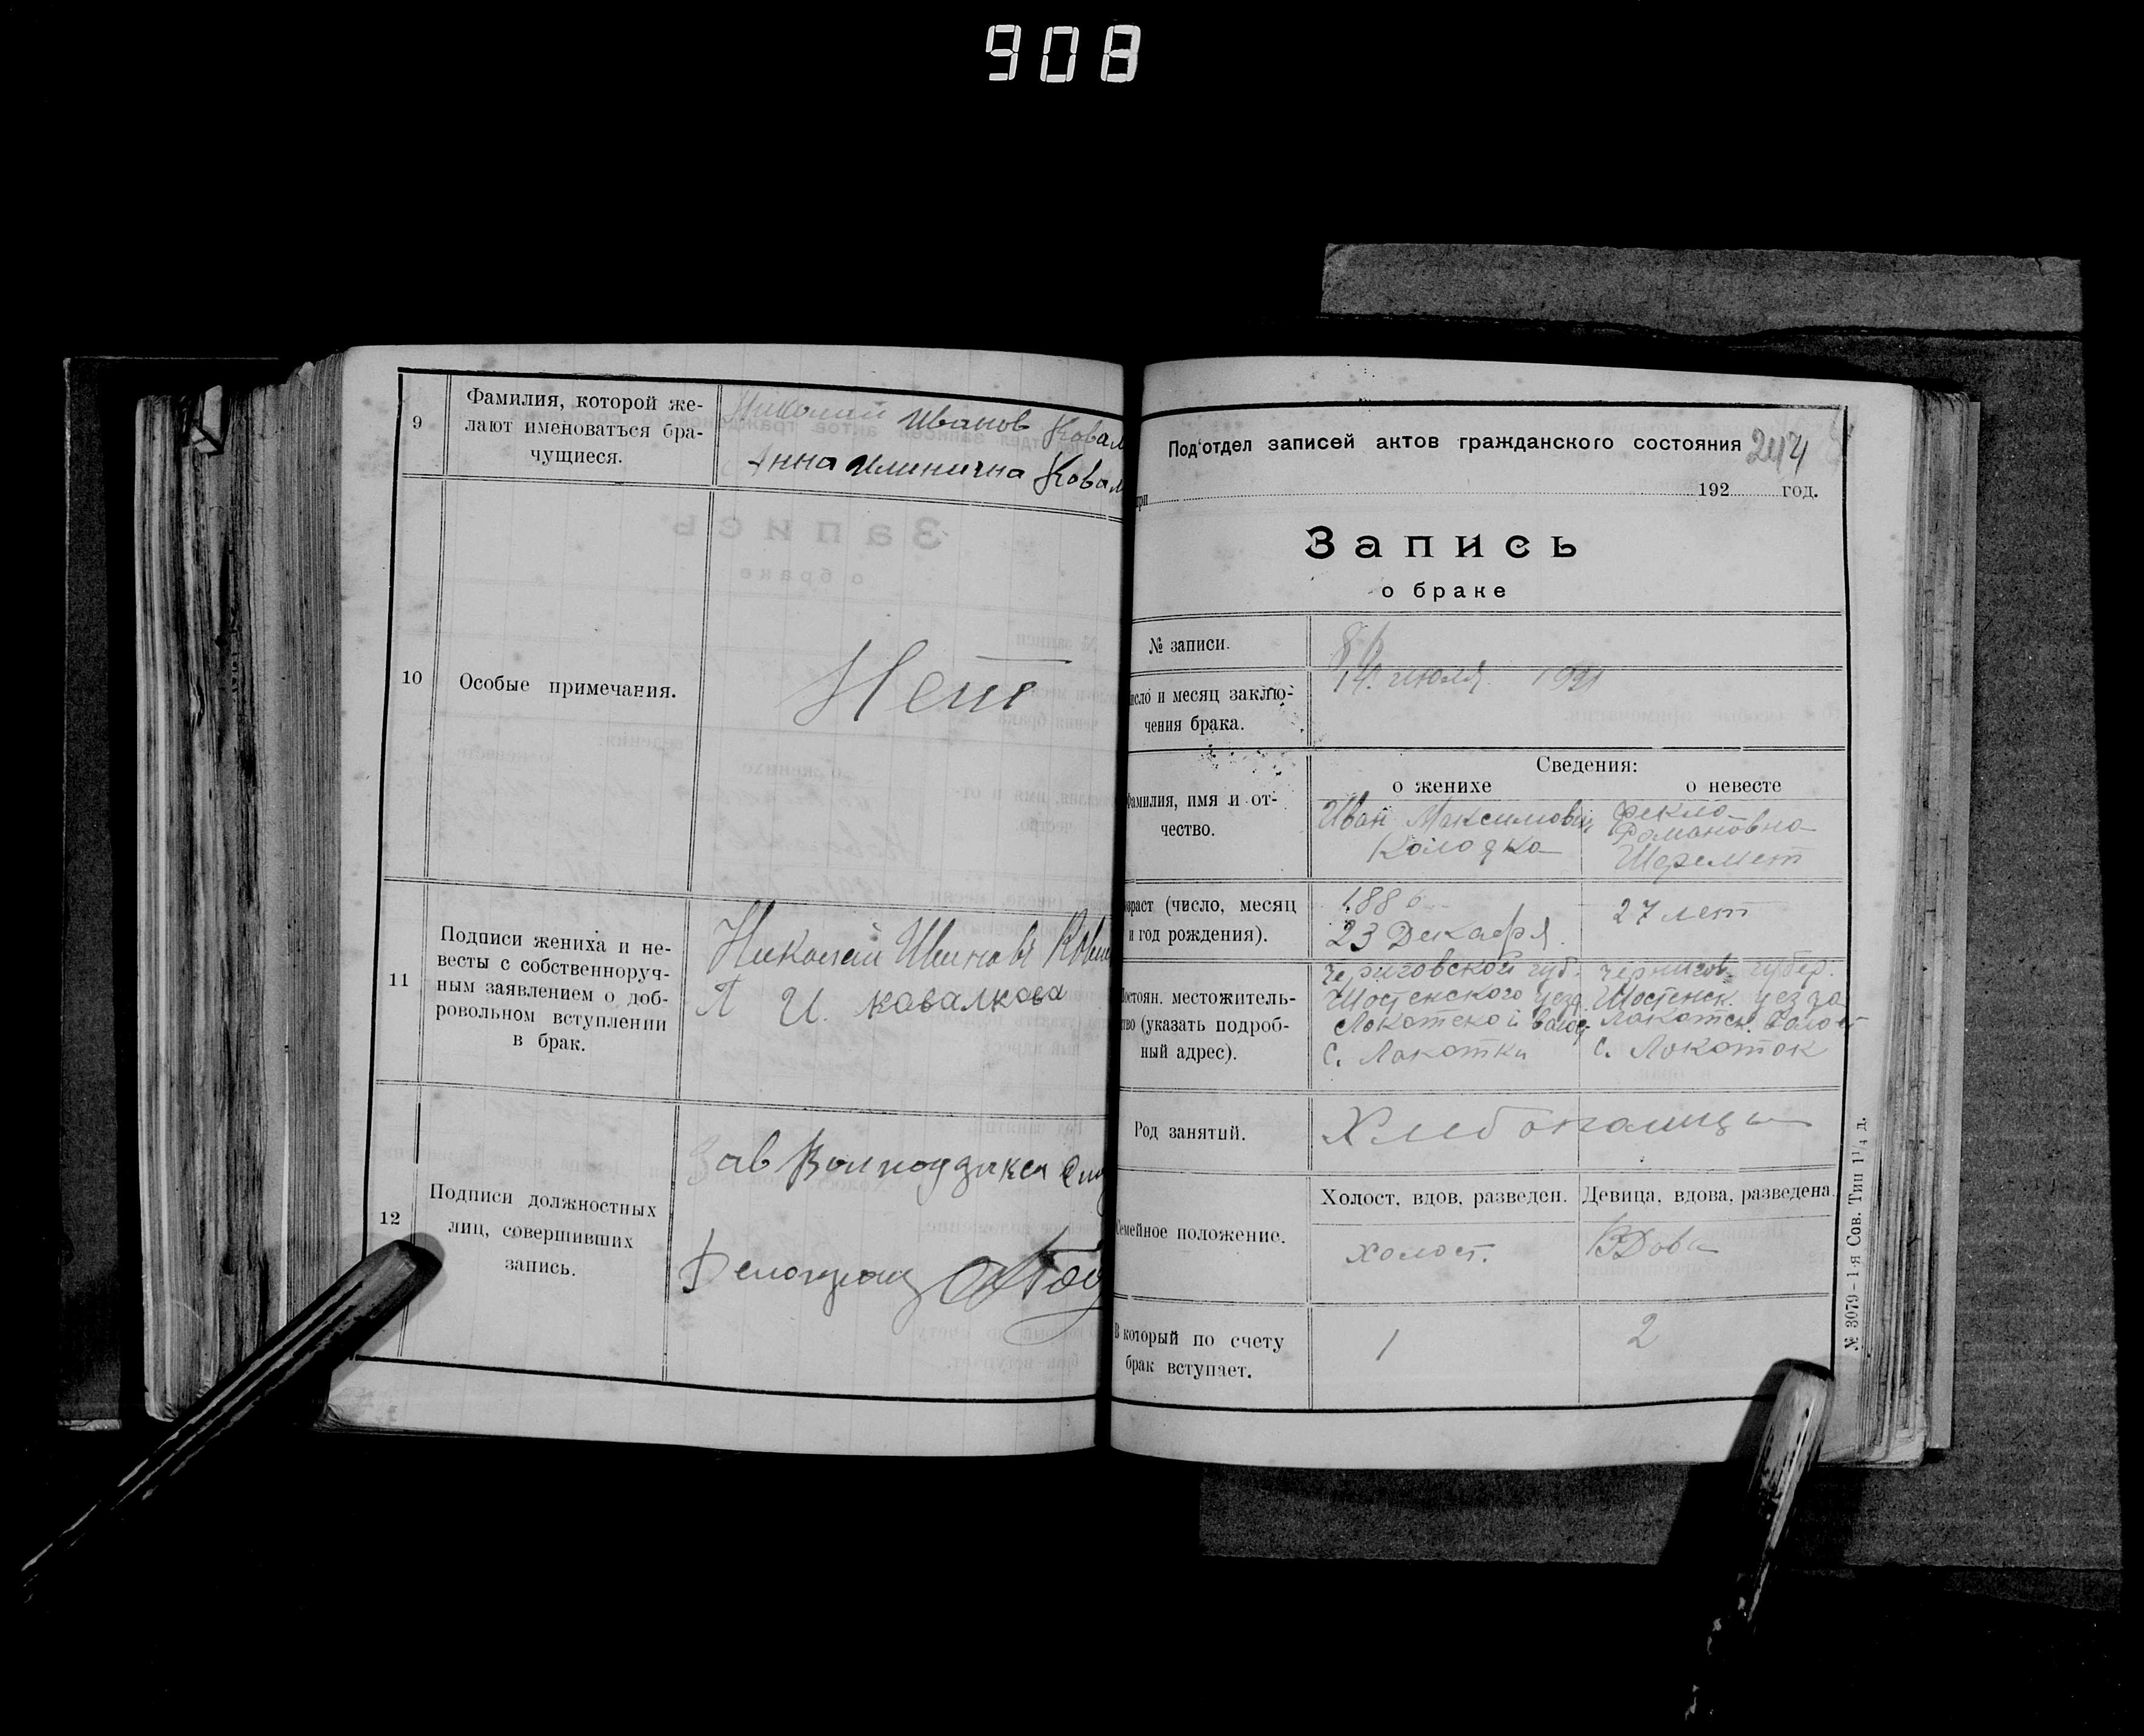 908
9
Фамилия, которой же-
лают именоваться бра-
чущиеся.
Николай Иванов Ковал
Анна Илинична Ковал
10
Особые примечания.
Нет
11
Подписи жениха и не-
весты с собственноруч-
ным заявлением о доб-
ровольном вступлении
в брак.
Николай Иванов
И. ковалкова
12
Подписи должностных
лиц, совершивших
запись.
Зав
Подотдел записей актов гражданского состояния 244
при 192 год.
Запись
о браке
№ записи.
число и месяц заклю-
чения брака.
14 июля 1921
Сведения:
о женихе о невесте
Фамилия, имя и от-
чество.
Иван Максимович
Колодка
Фекла
Романовна
Шеремет
Возраст (число, месяц
и год рождения).
1886
23 Декабря
27 лет
Постоян. местожитель-
ство (указать подроб-
ный адрес).
Черниговской губ.
Шостенского уезд.
Локотской волос
С. Локотки
Чернигов. губер.
Шостенск. уезда
Локотск. волост
С. Локоток
Род занятий.
Хлебопашцы
Семейное положение.
Холост, вдов, разведен. Девица, вдова, разведена.
холост. Вдова
В который по счету
брак вступает.
1 2
№ 3079 – 1-я Сов. Тип 1¼ д.